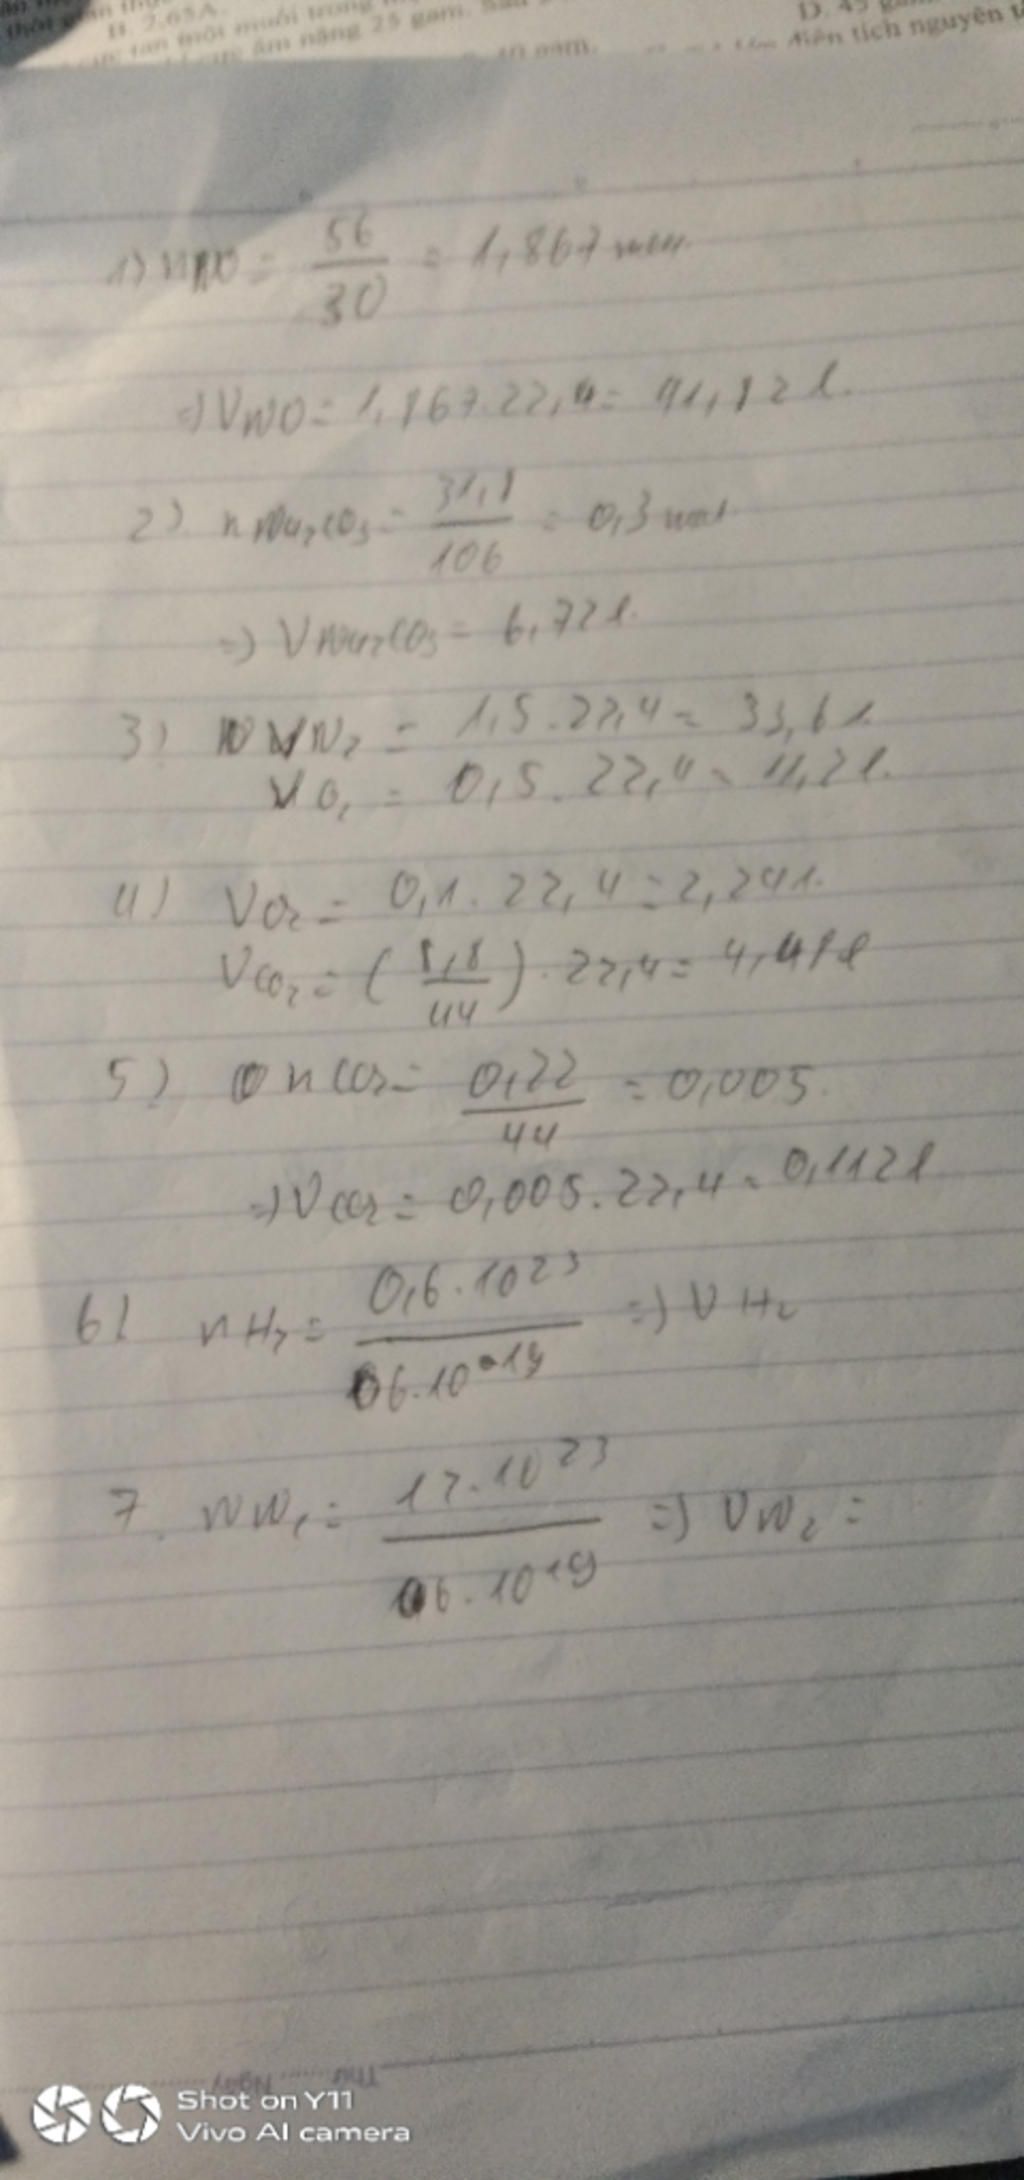 B. 2,65A.
tan một muối trong
âm nặng 25 gam.
D. 45
40 gam.
điện tích nguyên
1) nNO = 56/30 = 1,867 mol.
=) VNO = 1,867.22,4 = 41,82 l.
2) n Na2CO3 = 31,8/106 = 0,3 mol
=) VNa2CO3 = 6,72 l.
3) VN2 = 1,5.22,4 = 33,6 l.
VO2 = 0,5.22,4 = 11,2 l.
4) VO2 = 0,1.22,4 = 2,24 l.
VCO2 = (8,8/44).22,4 = 4,48 l
5) nCO2 = 0,22/44 = 0,005.
=) VCO2 = 0,005.22,4 = 0,112 l
6) nH2 = 0,6.10^23/6.10^-19 =) VH2
7. nN2 = 12.10^23/6.10^-19 =) VN2 =
Thứ........Ngày
Shot on Y11
Vivo AI camera